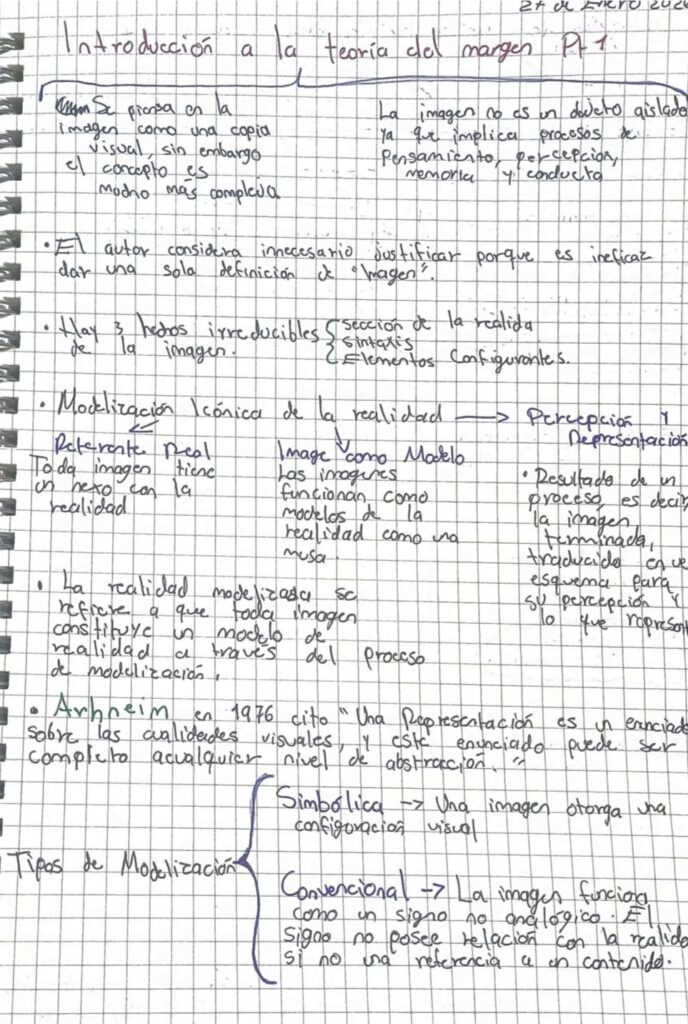 27 de Enero 202
Introducción a la teoría del margen Pt 1.
Se piensa en la
imagen como una copia
visual, sin embargo
el concepto es
mucho más compleja.
La imagen no es un objeto aislado
ya que implica procesos de
Pensamiento, percepción,
memoria y conducta
• El autor considera innecesario justificar porque es ineficaz
dar una sola definición de "Imagen".
• Hay 3 hechos irreducibles
de la imagen.
sección de la realida
sintaxis
Elementos Configurantes.
• Modelización Icónica de la realidad → Percepción y
Representación
Referente Real
Toda imagen tiene
un nexo con la
realidad
Image como Modelo
Las imagenes
funcionan como
modelos de la
realidad como una
musa.
• Resultado de un
proceso, es decir,
la imagen
terminada,
traducido en ue
esquema para
su percepción y
lo que represent
• La realidad modelizada se
refiere a que toda imagen
constituye un modelo de
realidad a través del proceso
de modelización.
• Arhneim en 1976 cito "Una Representación es un enunciado
sobre las cualidades visuales, y este enunciado puede ser
completo acualquier nivel de abstracción."
Tipos de Modelización
Simbólica → Una imagen otorga una
configuracion visual
Convencional → La imagen funciona
como un signo no analógico. El
signo no posee relación con la realida
si no una referencia a un contenido.